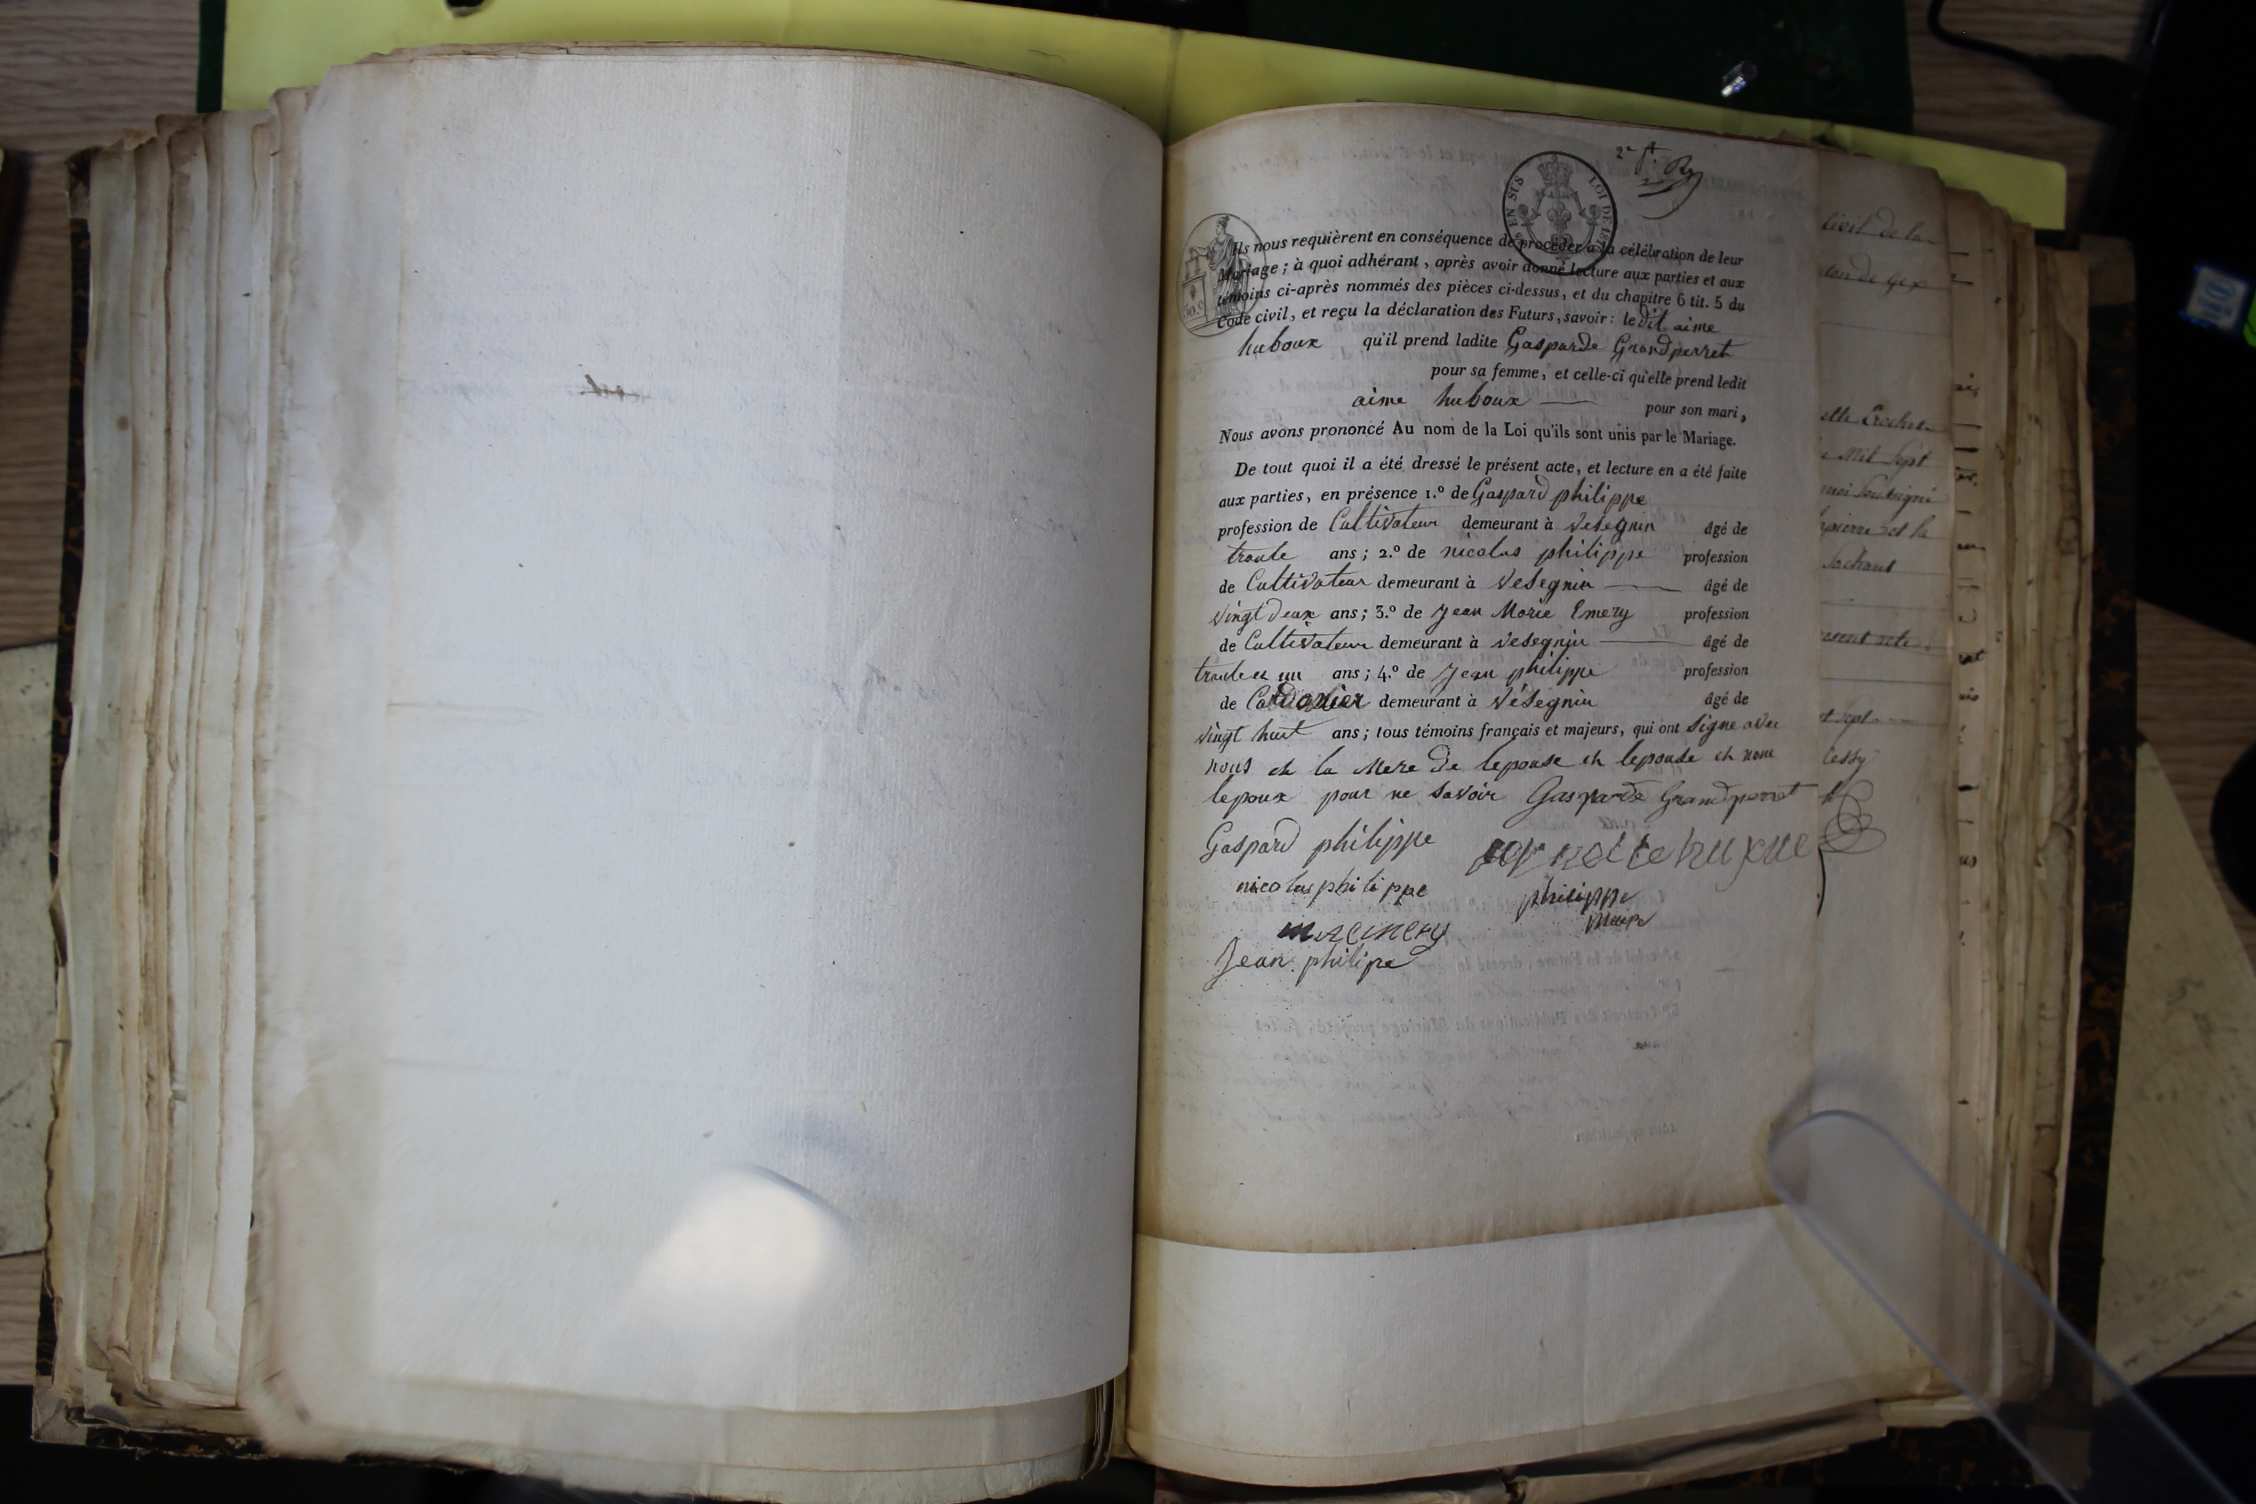 EN SUS LOI DE 18
50.c
Ils nous requièrent en conséquence de procéder à la célébration de leur
Mariage; à quoi adhérant, après avoir donné lecture aux parties et aux
témoins ci-après nommés des pièces ci-dessus, et du chapitre 6 tit. 5 du
Code civil, et reçu la déclaration des Futurs, savoir: le dit aime
huboux qu'il prend ladite Gasparde Grandperret
pour sa femme, et celle-ci qu'elle prend ledit
aime huboux pour son mari,
Nous avons prononcé Au nom de la Loi qu'ils sont unis par le Mariage.
De tout quoi il a été dressé le présent acte, et lecture en a été faite
aux parties, en présence 1.º de Gaspard philippe
profession de Cultivateur demeurant à Vesegnin âgé de
trante ans; 2.º de nicolas philippe profession
de Cultivateur demeurant à Vesegnin âgé de
vingt deux ans; 3.º de Jean Marie Emery profession
de Cultivateur demeurant à vesegnin âgé de
trante et un ans; 4.º de Jean philippe profession
de demeurant à Vésegnin âgé de
vingt huit ans; tous témoins français et majeurs, qui ont signe avec
nous et la Mere de lepouse et lepouse et nom
lepoux pour ne savoir Gasparde Grandperret
Gaspard philippe
nicolas philippe philippe
maire
emery
Jean philipe
civil de la
ton de Gex
Mil Sept
moi Soussigné
pierre et la
Sachant
present acte
et sept